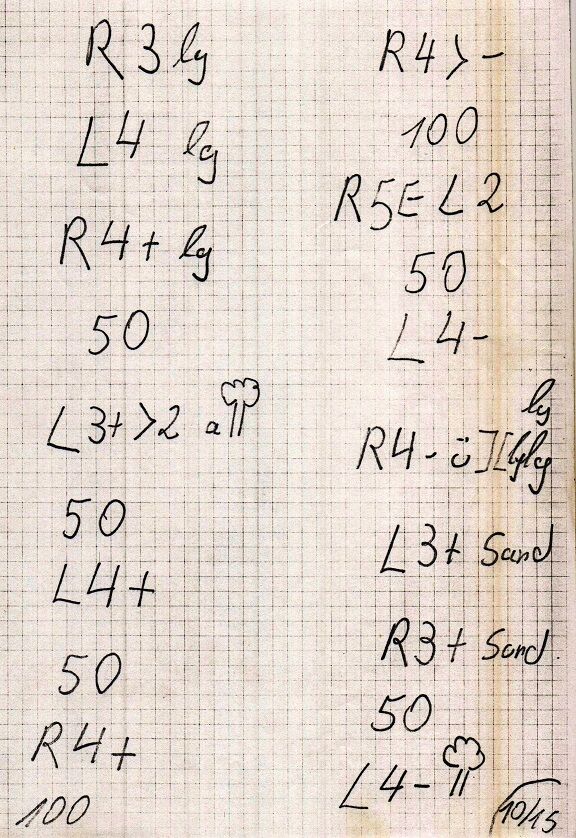 R3 lg
L4 lg
R4+ lg
50
L3+ >2 a
50
L4+
50
R4+
100
R4 > -
100
R5E L2
50
L4-
lg
R4- ü ][ lg lg
L3+ Sand
R3+ Sand
50
L4-
10/15